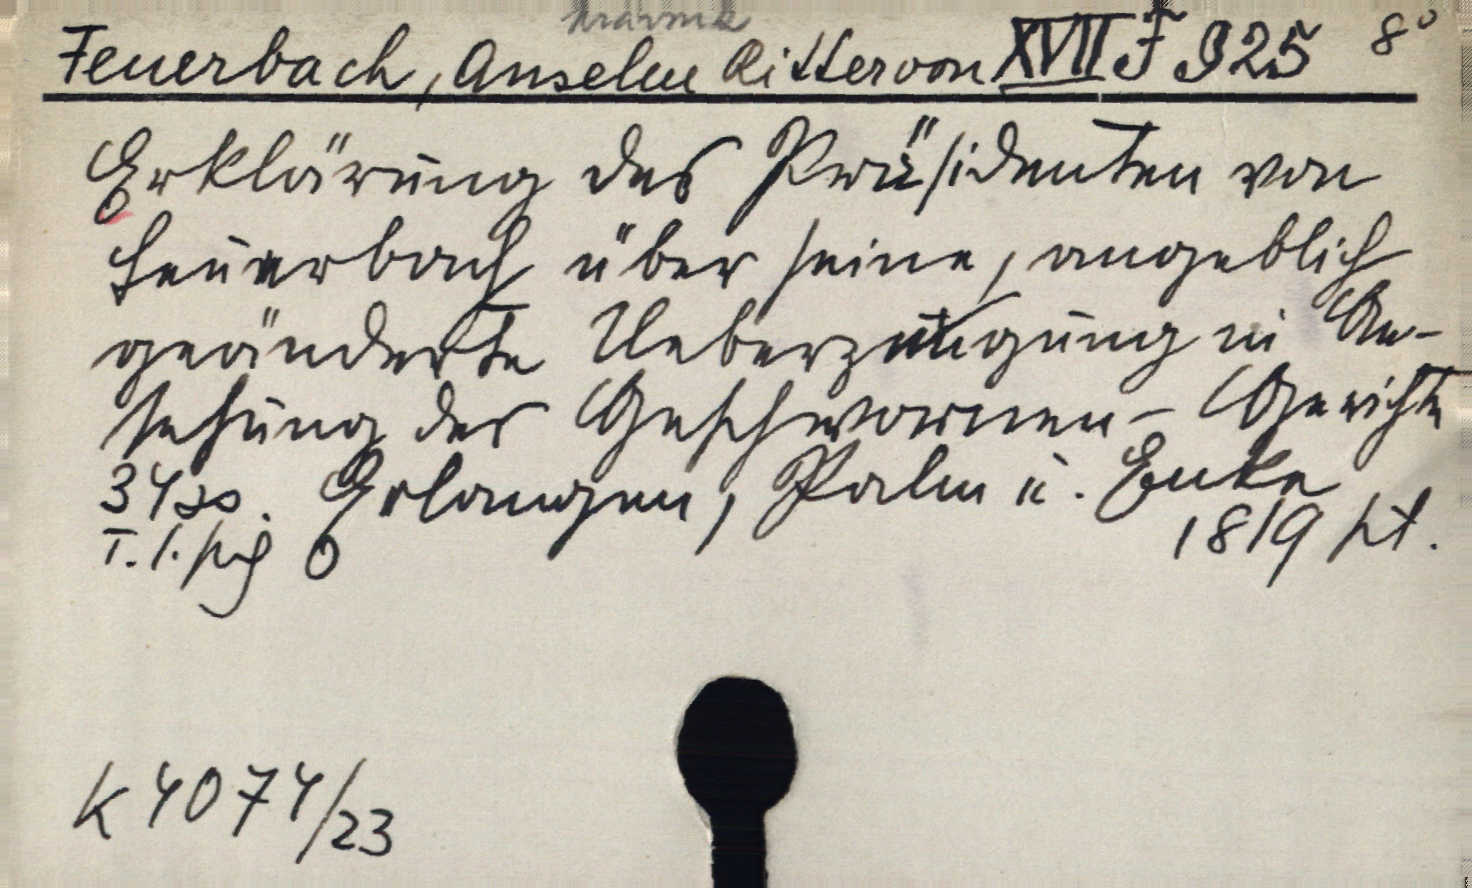 pravnik
Feuerbach, Anselm Ritter von XVII F 925 8°
Erklärung des Präsidenten von
Feuerbach über seine, angeblich
geänderte Ueberzeugung in An-
sehung der Geschwornen-Gerichte
34 ss. Erlangen, Palm u. Enke
1819 pt.
T. l. pig
K 4074/23